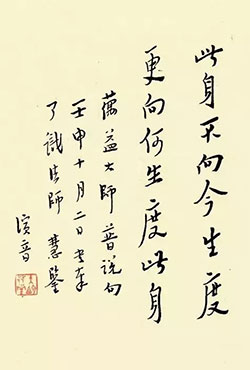 此身不向今生度
更向何生度此身
蕅益大师普说句
壬申十月二日书奉
了识法师 慧鉴
演音